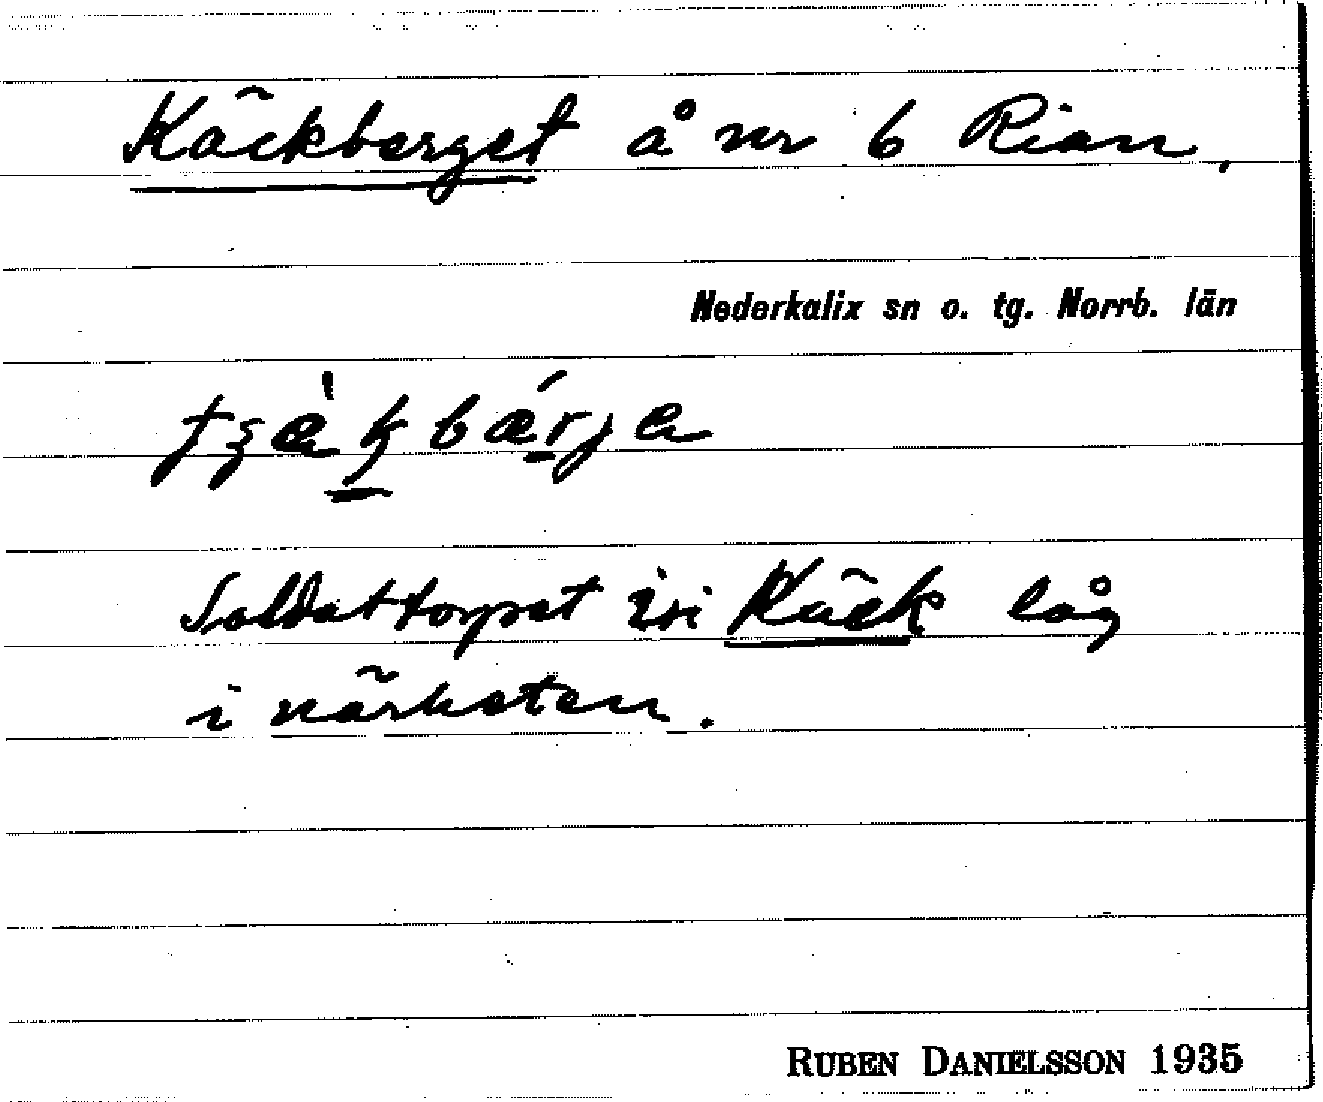 Käckberget å nr 6 Rian,
Nederkalix sn o. tg. Norrb. län
Soldattorpet Käck låg
i närheten.
RUBEN DANIELSSON 1935